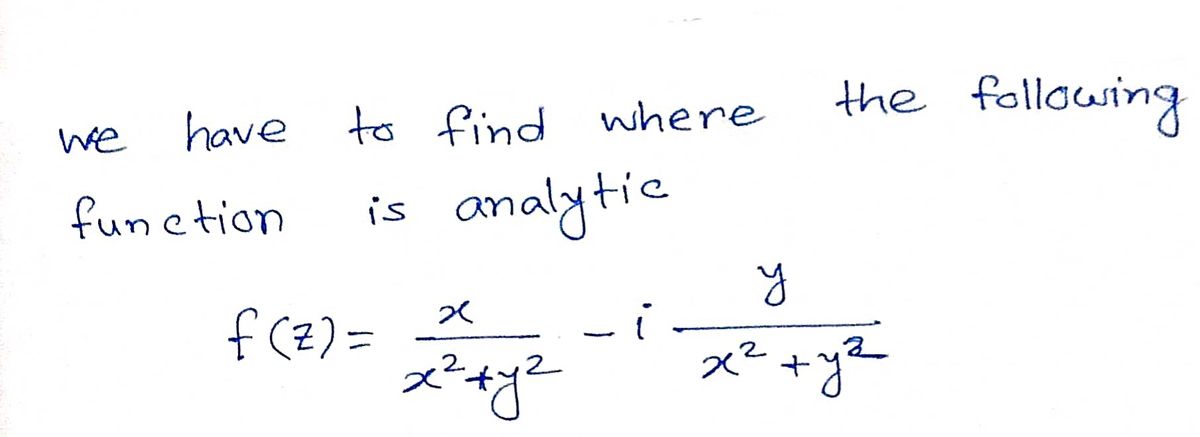 we have to find where the following
function is analytic
f(z) = x/(x²+y²) - i y/(x²+y²)